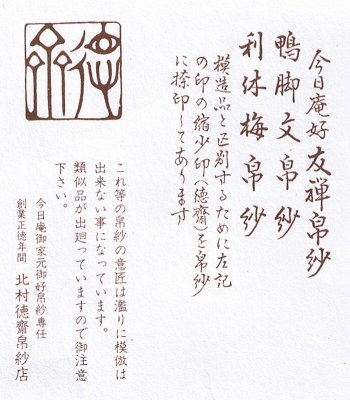 今日庵好 友禅帛紗
鴨脚文帛紗
利休梅帛紗
模造品と区別するために左記
の印の縮少印(徳斎)を帛紗
に捺印してあります
徳斎
これ等の帛紗の意匠は濫りに模倣は
出来ない事になっています。
類似品が出廻っていますので御注意
下さい。
今日庵御家元御好帛紗専任
創業正徳年間 北村徳齋帛紗店